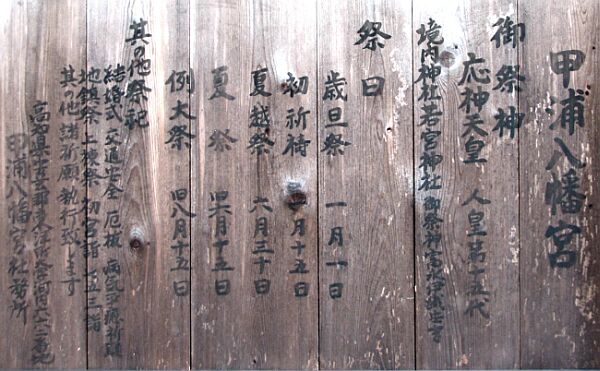 甲浦八幡宮
御祭神
応神天皇 人皇第十五代
境内神社若宮神社 御祭神
祭日
歳旦祭 一月一日
初祈祷 月十五日
夏越祭 六月三十日
夏祭 旧六月十五日
例大祭 旧八月十五日
其の他祭祀
結婚式 交通安全 厄抜 病気平癒祈願
地鎮祭 上棟祭 初宮詣 七五三詣
其の他諸祈願執行致します
高知県安芸郡東洋町大字河内
甲浦八幡宮社務所